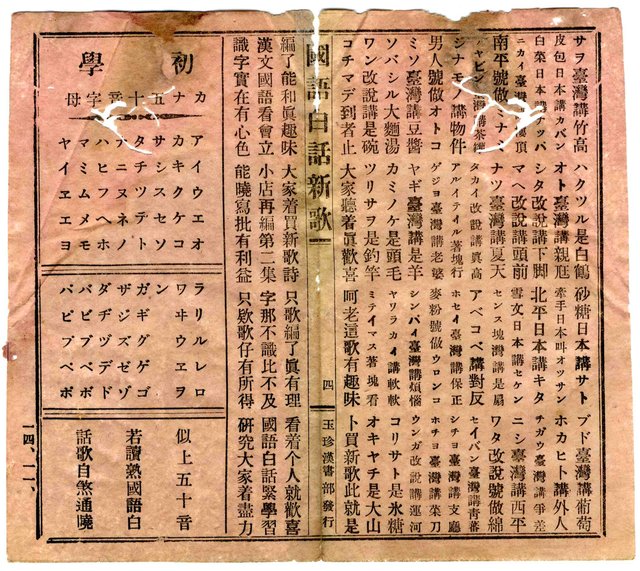 サヲ臺灣講竹高 ハクツル是白鶴 砂糖日本講サト ブド臺灣講葡萄
皮包日本講カバン オト臺灣講親尫 牽手日本叫オッサン ホカヒト講外人
白菜日本講ナッパ シタ改說講下脚 北平日本講キタ チガウ臺灣講爭差
ニカイ臺灣講樓頂 マヘ改說講頭前 雪文日本講セケン ニシ臺灣講西平
南平號做ミナミ ナツ臺灣講夏天 センス塊灣講是扇 ワタ改說號做綿
ャビン 灣講茶 タカイ改說講眞高 アベコベ講對反 セイバン臺灣講靑蕃
ジナモノ講物件 アルイテイル著塊行 ホセイ臺灣講保正 シチヨ臺灣講支廳
男人號做オトコ ゲジヨ臺灣講老婆 麥粉號做ウロンコ ホチヨ臺灣講菜刀
ミソ臺灣講豆醬 ヤギ臺灣講是羊 シンパイ臺灣講煩惱 ウンガ改說講運河
ソバシル大麵湯 カミノケ是頭毛 ヤワラカイ講軟軟 コリサト是氷糖
ワン改說講是碗 ツリサヲ是釣竿 ミテイマス著塊看 オキヤチ是大山
コチマデ到者止 大家聽着眞歡喜 呵老這歌有趣味 卜買新歌此就是
國語白話新歌 四 玉珍漢書部發行
編了能和眞趣味 大家着買新歌詩 只歌編了眞有理 看着个人就歡喜
漢文國語看會立 小店再編第二集 字那不識比不及 國語白話緊學習
識字實在有心色 能曉寫批有利益 只欵歌仔有所得 硏究大家着盡力
初學
カナ五十音字母
アイウエオ
カキクケコ
サシスセソ
タチツテト
ナニヌネノ
ハヒフヘホ
マミムメモ
ヤイユエヨ
ラリルレロ
ワヰウヱヲ
ン
ガギグゲゴ
ザジズゼゾ
ダヂヅデド
バビブベボ
パピプペポ
似上五十音
若讀熟國語白
話歌自然通曉
一四、一一、